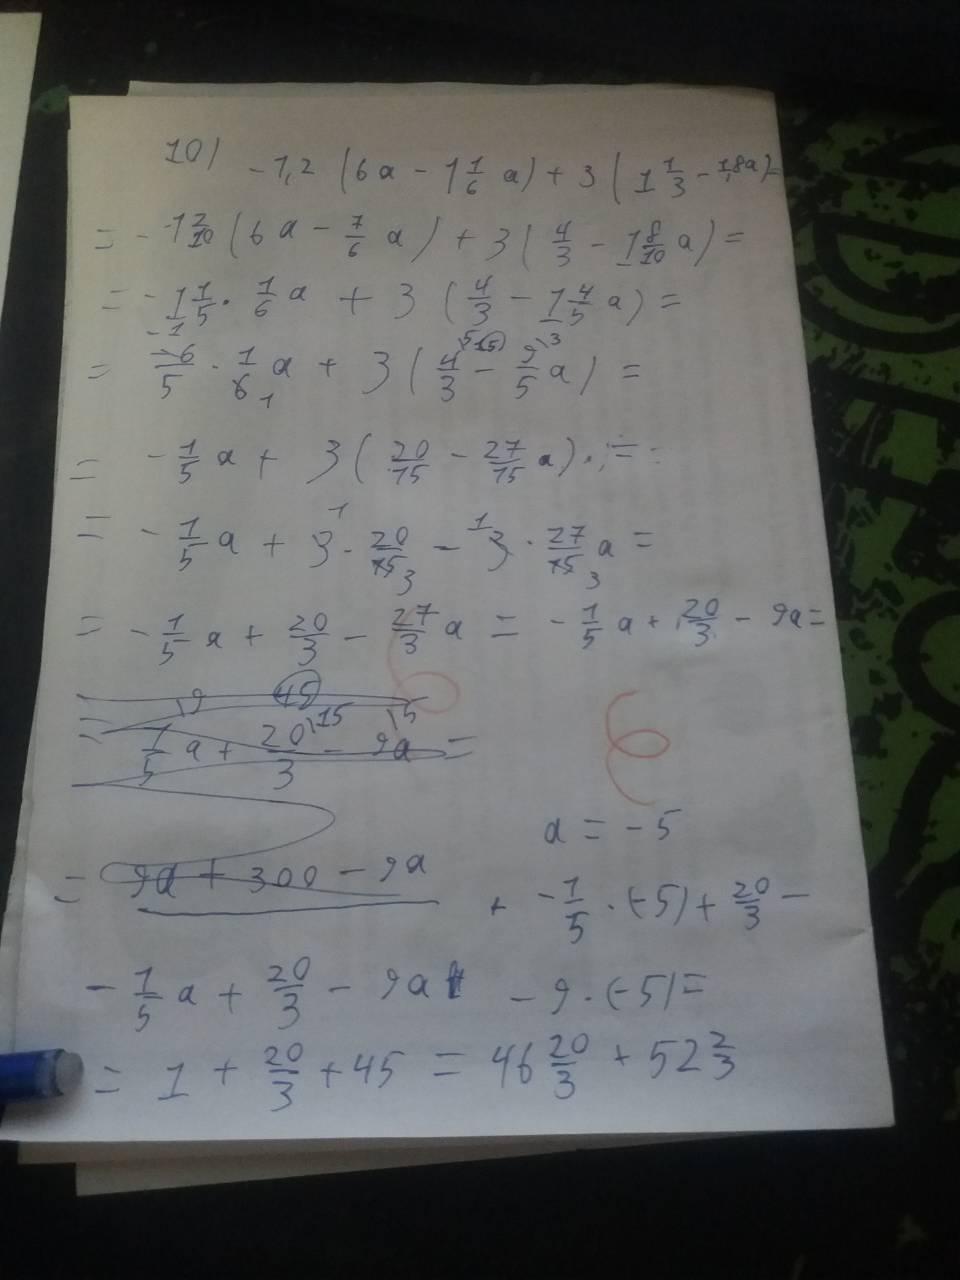 10) -1,2 (6a - 1 1/6 a) + 3 (1 1/3 - 1,8a) =
= - 1 2/10 (6a - 7/6 a) + 3 (4/3 - 1 8/10 a) =
= - 1 1/5 · 1/6 a + 3 (4/3 - 1 4/5 a) =
= -6/5 · 1/6 a + 3 (4/3 - 9/5 a) =
= - 1/5 a + 3 (20/15 - 27/15 a) =
= - 1/5 a + 3 · 20/15 - 3 · 27/15 a =
= - 1/5 a + 20/3 - 27/3 a = - 1/5 a + 20/3 - 9a =
= 1/5 a + 20/3 - 9a =
a = -5
= 9a + 300 - 9a
- 1/5 · (-5) + 20/3 -
- 1/5 a + 20/3 - 9a
- 9 · (-5) =
= 1 + 20/3 + 45 = 46 20/3 + 52 2/3